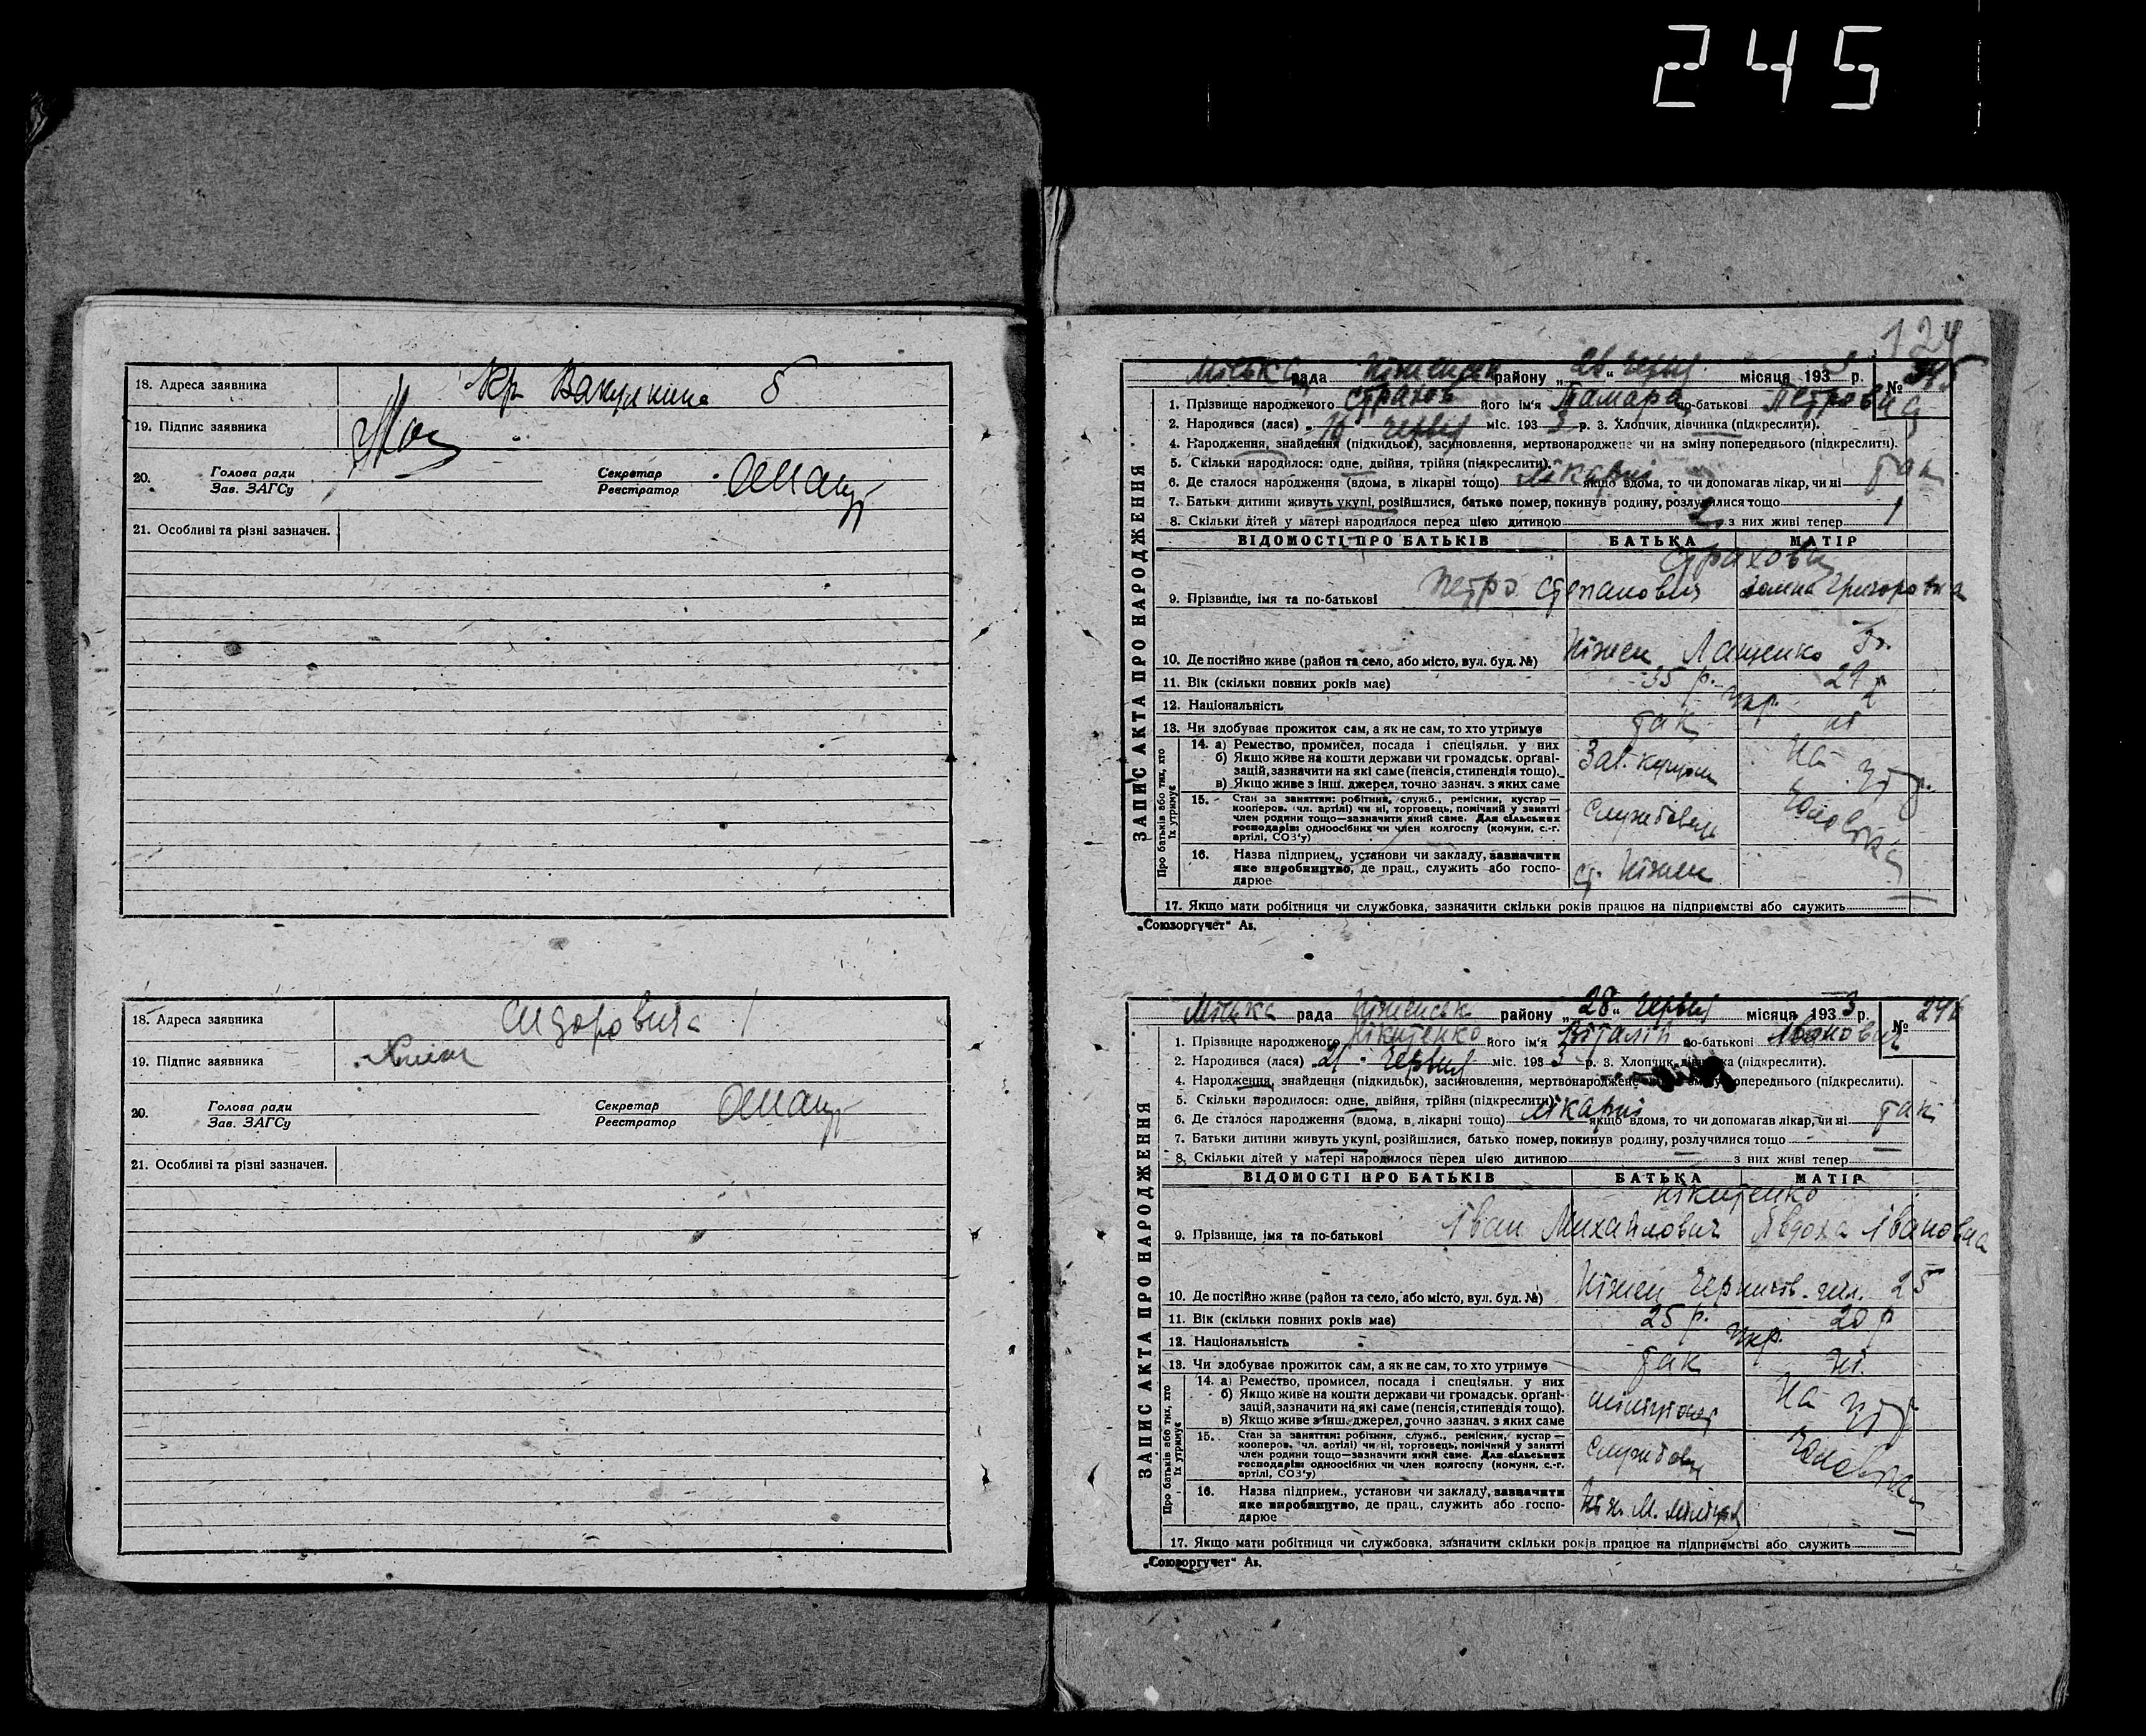 245
18. Адреса заявника
Вакуленка 8
19. Підпис заявника
20.
Голова ради
Зав. ЗАГСу
Секретар
Реєстратор
21. Особливі та різні зазначен.
18. Адреса заявника
Сидоровича 1
19. Підпис заявника
20.
Голова ради
Зав. ЗАГСу
Секретар
Реєстратор
21. Особливі та різні зазначен.
124
Міська рада Ніженськ району „28“ червня місяця 1933 р. № 245
ЗАПИС АКТА ПРО НАРОДЖЕННЯ
1. Прізвище народженого Страхов його ім'я Тамара по-батькові Петровна
2. Народився (лася) „ 10 червня міс. 1933 р. 3. Хлопчик, дівчинка (підкреслити).
4. Народження, знайдення (підкидьок), засиновлення, мертвонароджене чи на зміну попереднього (підкреслити).
5. Скільки народилося: одне, двійня, трійня (підкреслити).
6. Де сталося народження (вдома, в лікарні тощо) лікарні якщо вдома, то чи допомагав лікар, чи ні так
7. Батьки дитини живуть укупі, розійшлися, батько помер, покинув родину, розлучилися тощо
8. Скільки дітей у матері народилося перед цією дитиною 2 з них живі тепер 1
ВІДОМОСТІ ПРО БАТЬКІВ БАТЬКА МАТІР
Страхови
9. Прізвище, імя та по-батькові Петро Степанович Григоровна
10. Де постійно живе (район та село, або місто, вул. буд. №) Ніжен Лащенко
11. Вік (скільки повних років має) 35 р. 27 р
12. Національність Укр.
13. Чи здобуває прожиток сам, а як не сам, то хто утримує так ні
Про батьків або тих, хто їх утримує
14. а) Ремество, промисел, посада і спеціяльн. у них
б) Якщо живе на кошти держави чи громадськ. органі-
зацій, зазначити на які саме (пенсія, стипендія тощо).
в) Якщо живе з інш. джерел, точно зазнач. з яких саме
Зав. На утр.
15. Стан за заняттям: робітник, служб., ремісник, кустар —
кооперов. (чл. артілі) чи ні, торговець, помічний у занятті
член родини тощо—зазначити який саме. Для сільських
господарів: одноосібних чи член колгоспу (комуни, с.-г.
артілі, СОЗ'у)
Службовець
16. Назва підприєм., установи чи закладу, зазначити
яке виробництво, де прац., служить або госпо-
дарює
ст. Ніжен
17. Якщо мати робітниця чи службовка, зазначити скільки років працює на підприємстві або служить
„Союзоргучет“ Ав.
Міська рада Ніженськ району „28“ червня місяця 1933 р. № 246
ЗАПИС АКТА ПРО НАРОДЖЕННЯ
1. Прізвище народженого Нікитенко його ім'я Віталій по-батькові Іванович
2. Народився (лася) „21“ червня міс. 1933 р. 3. Хлопчик, дівчинка (підкреслити).
4. Народження, знайдення (підкидьок), засиновлення, мертвонароджене попереднього (підкреслити).
5. Скільки народилося: одне, двійня, трійня (підкреслити).
6. Де сталося народження (вдома, в лікарні тощо) лікарні якщо вдома, то чи допомагав лікар, чи ні так
7. Батьки дитини живуть укупі, розійшлися, батько помер, покинув родину, розлучилися тощо
8. Скільки дітей у матері народилося перед цією дитиною — з них живі тепер —
ВІДОМОСТІ ПРО БАТЬКІВ БАТЬКА МАТІР
Нікитенко
9. Прізвище, імя та по-батькові Іван Михайлович Явдоха Івановна
10. Де постійно живе (район та село, або місто, вул. буд. №) Ніжен Чернігів. шл. 25
11. Вік (скільки повних років має) 25 р. 20 р
12. Національність Укр.
13. Чи здобуває прожиток сам, а як не сам, то хто утримує так ні.
Про батьків або тих, хто їх утримує
14. а) Ремество, промисел, посада і спеціяльн. у них
б) Якщо живе на кошти держави чи громадськ. органі-
зацій, зазначити на які саме (пенсія, стипендія тощо).
в) Якщо живе з інш. джерел, точно зазнач. з яких саме
На утр
15. Стан за заняттям: робітник, служб., ремісник, кустар —
кооперов. (чл. артілі) чи ні, торговець, помічний у занятті
член родини тощо—зазначити який саме. Для сільських
господарів: одноосібних чи член колгоспу (комуни, с.-г.
артілі, СОЗ'у)
16. Назва підприєм., установи чи закладу, зазначити
яке виробництво, де прац., служить або госпо-
дарює
17. Якщо мати робітниця чи службовка, зазначити скільки років працює на підприємстві або служить —
„Союзоргучет“ Ав.